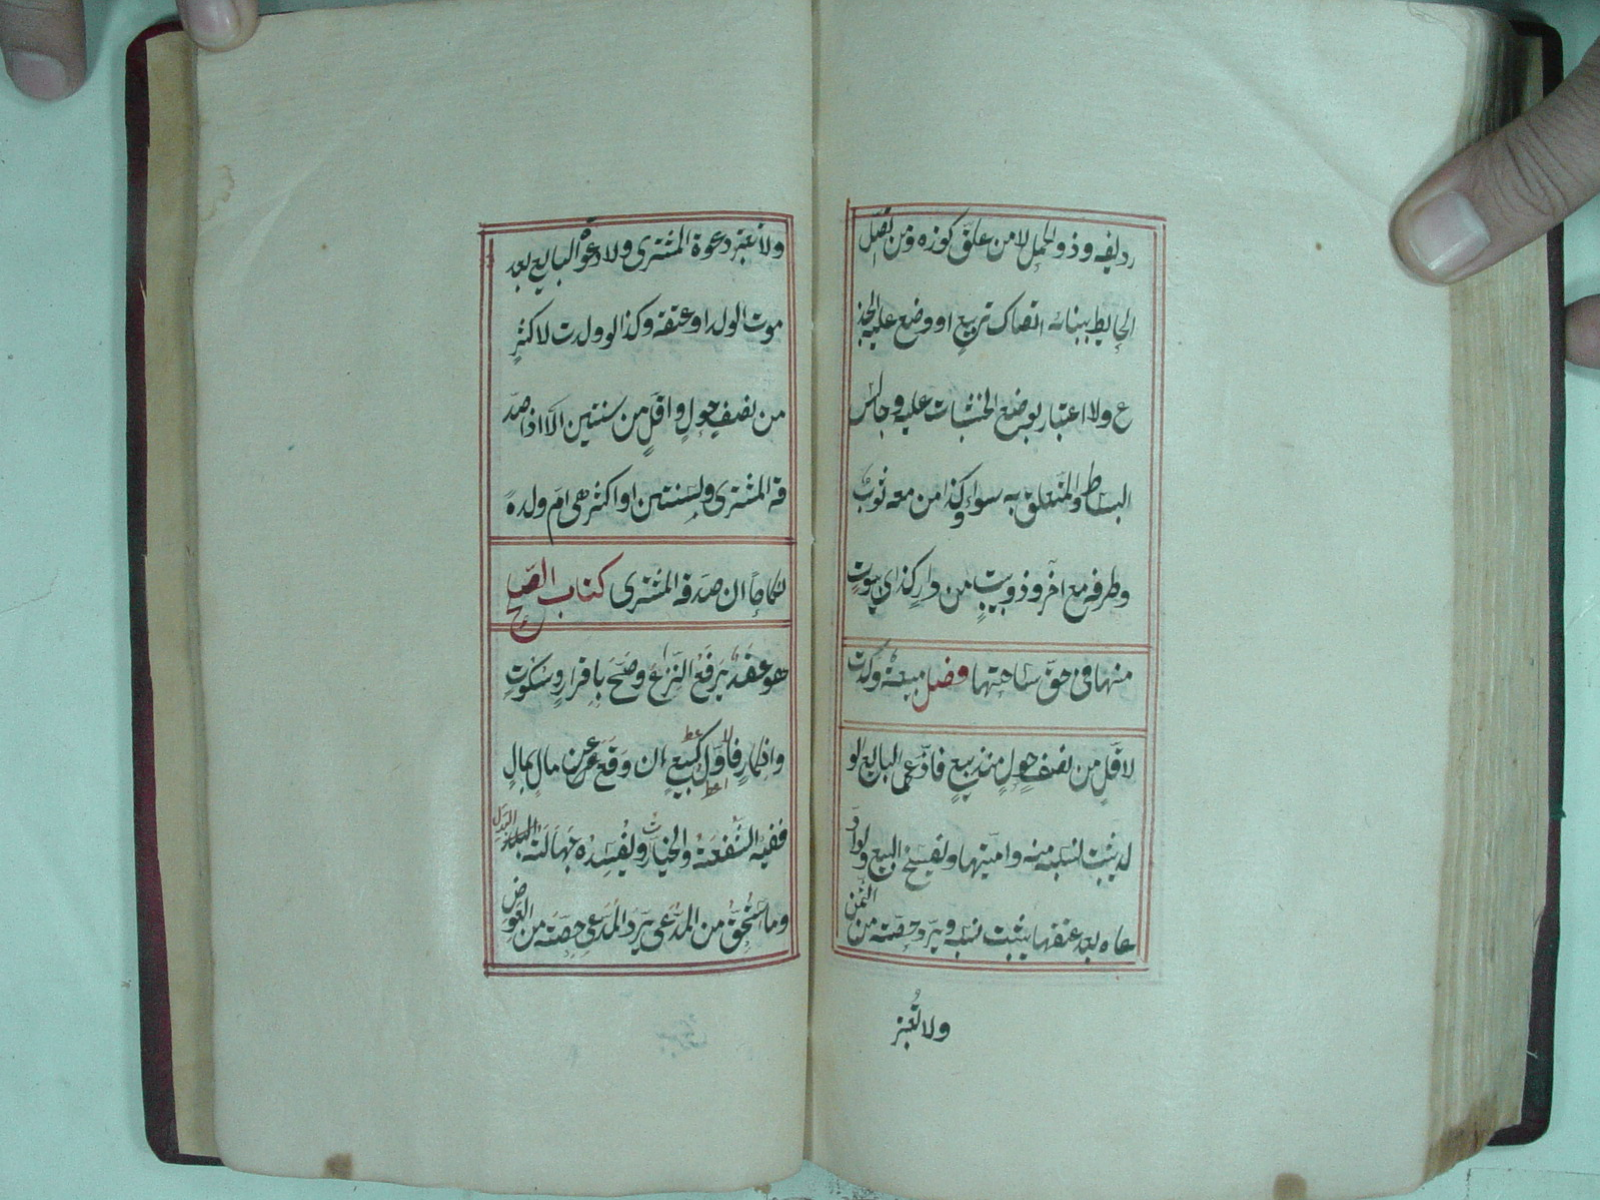 رديفه وذو الحمل لا من علق كوزه ومن اتصل
الحايط ببنائه اتصاك تربيع او وضع عليه الجذ
ع ولا اعتبار بوضع الخشبات عليه وجالس
البساط والمتعلق به سواء وكذا من معه ثوب
وطرفه مع اخر وذو بيت من دار كذي بيوت
منها فى حق ساحتها فصل مبيعة ولدت
لاقل من نصف حول منذ بيع فادعى البايع لو
لد يثبت نسبه منه واميتها ويفسخ البيع ولو اد
عاه بعد عتقها يثبت نسبه ويرد حصته من الثمن
ولا تعبر
ولا تعبر دعوة المشترى ولا دعوة البايع بعد
موت الولد او عتقه وكذا لو ولدت لاكثر
من نصف حول واقل من سنتين الا اذا صد
قه المشترى ولسنتين او اكثر هى ام ولده
نكاحا ان صدقه المشترى كتاب الصلح
هو عقد يرفع النزاع وصح باقرار وسكوت
وانكار فاول كبيع ان وقع عن مال بمال
ففيه الشفعة والخيارت ويفسده جهالة البدل
وما استحق من المدعى يرد المدعى حصته من العوض